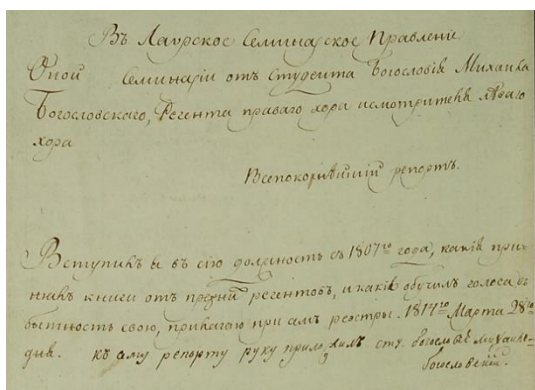 Въ Лаурское Семинарское Правленіе
Оной Семинаріи отъ студента Богословія Михаила
Богословскаго, Регента праваго хора исмотрителя лѣваго
хора
Всепокорнѣйшій репортъ.
Вступилъ я въ сію должность съ 1807го года, какія при-
нялъ книги отъ прежни регентовъ, и какія обучилъ голоса въ
бытность свою, прилагаю при амъ реэстры. 1817го Марта 28го
дня. къ аму репорту руку приложилъ сту. богословіе михаилъ-
богословскій.